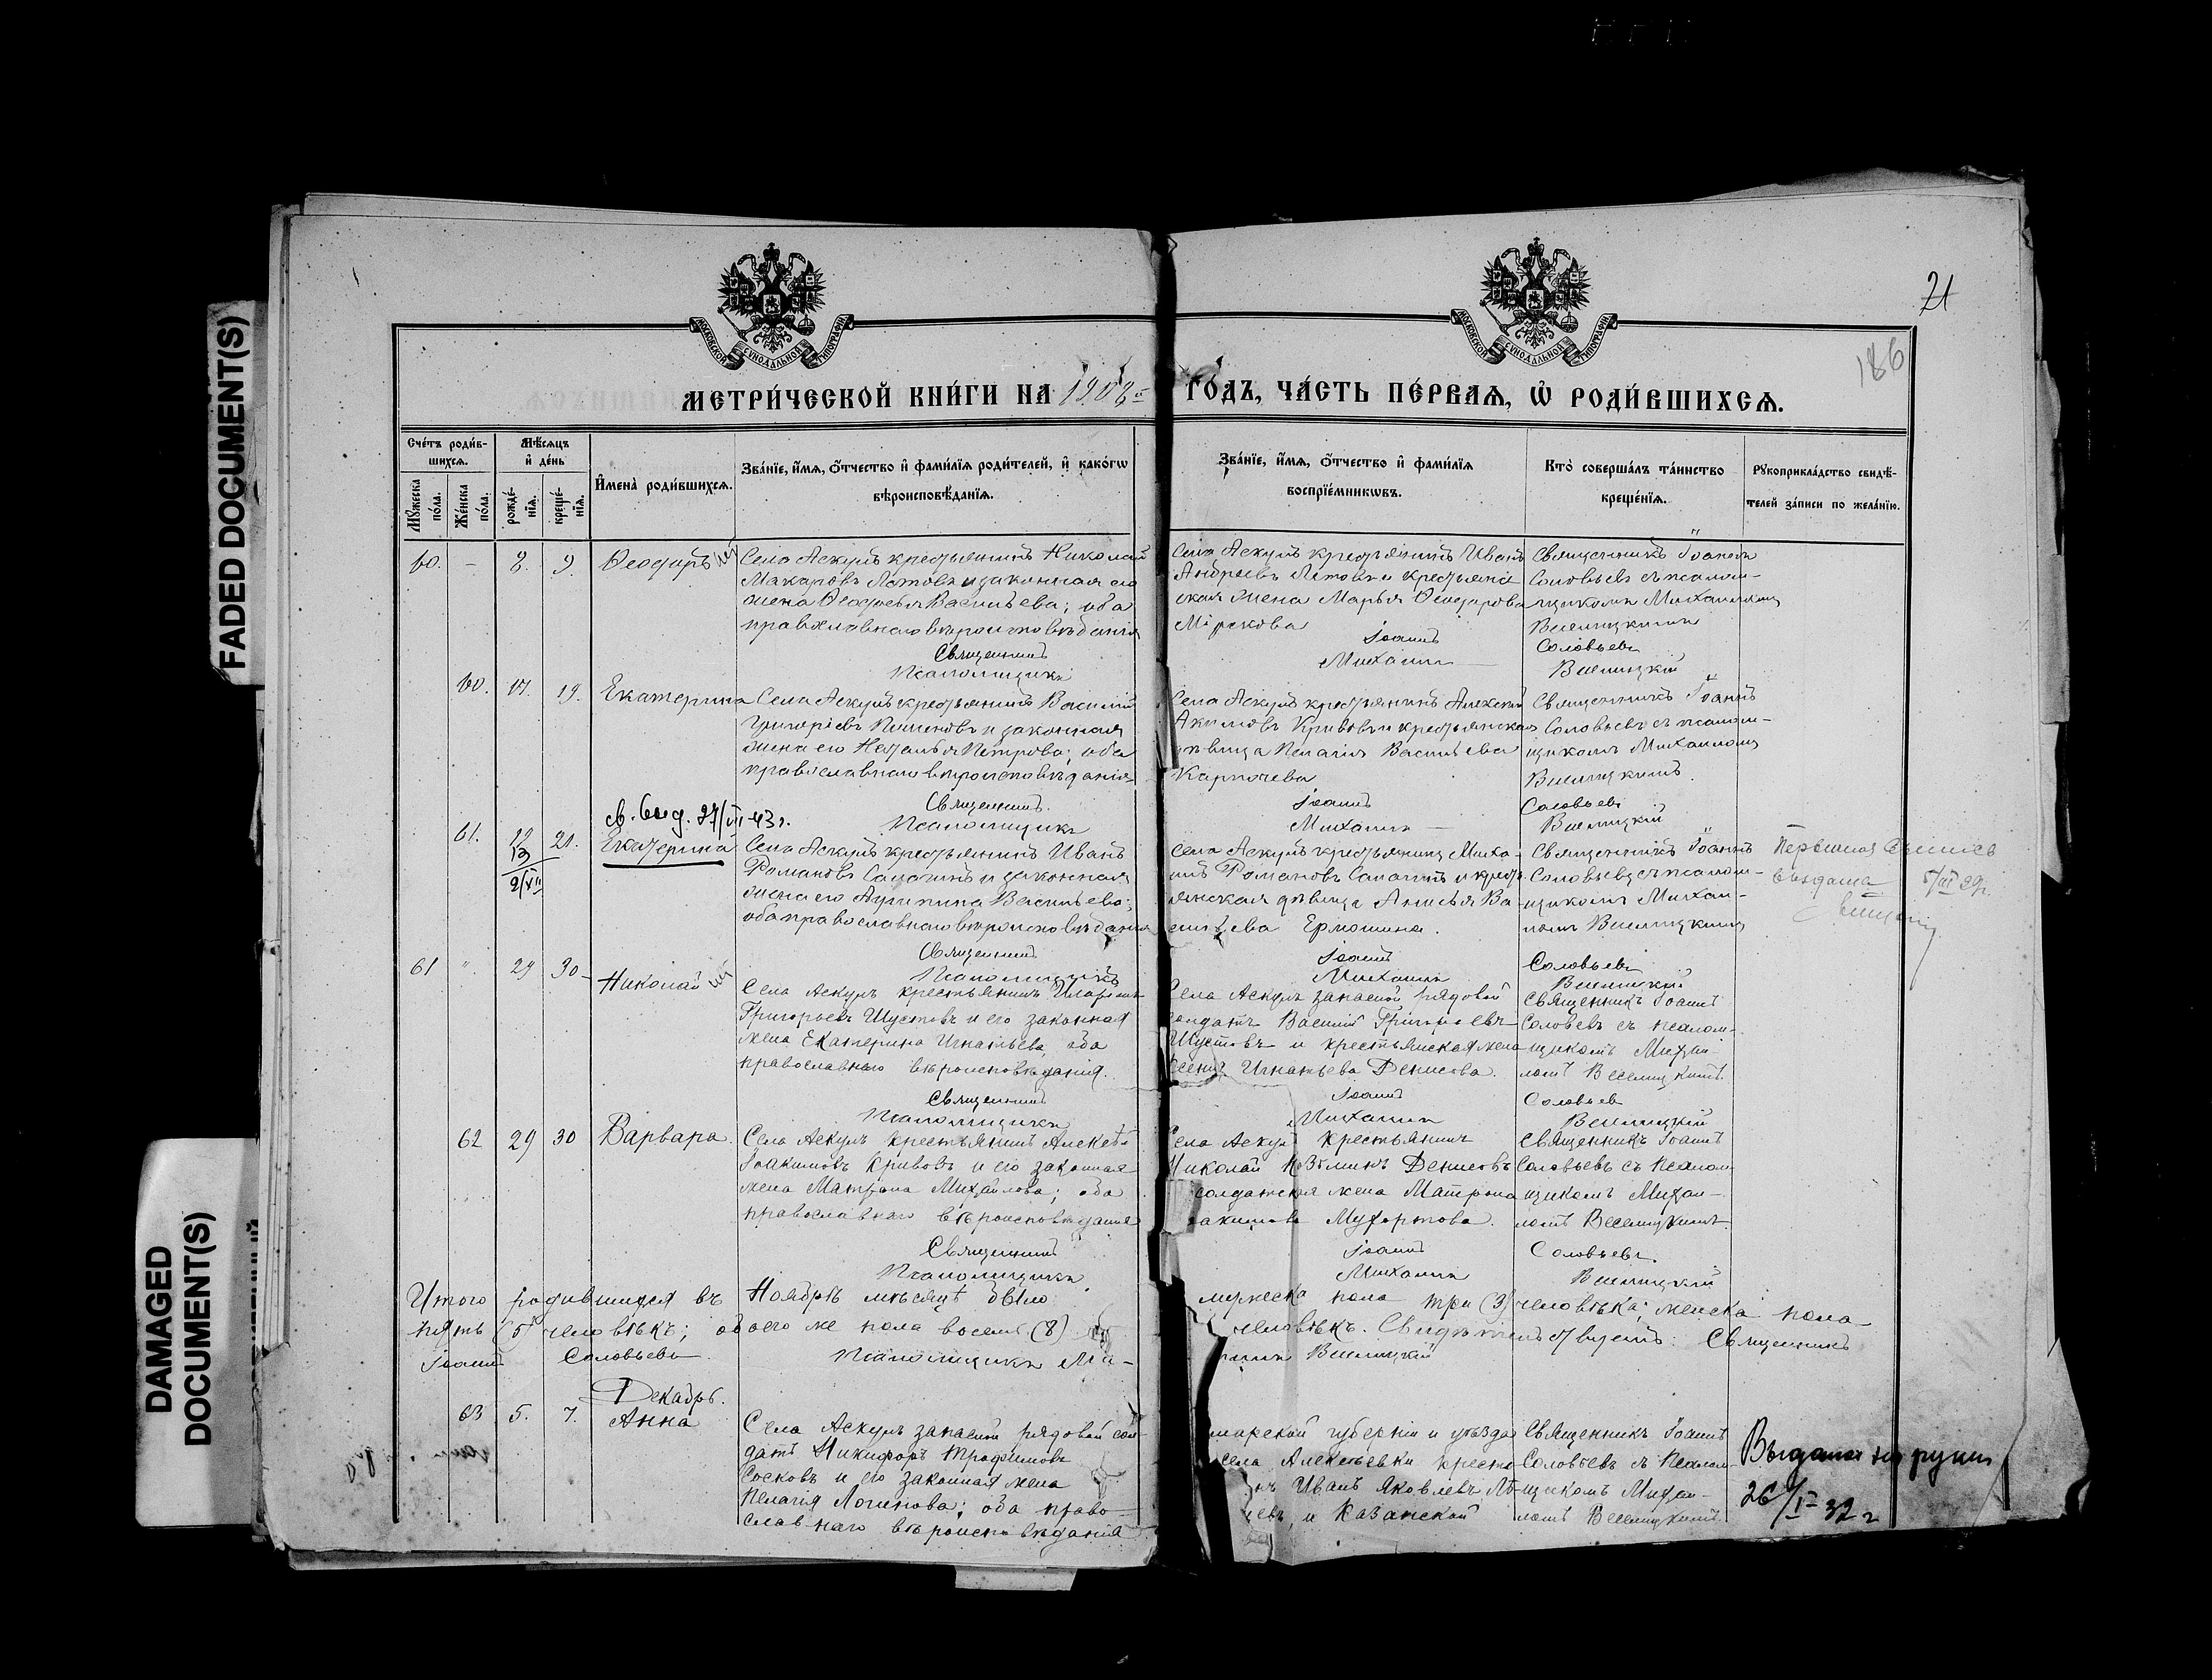 FADED DOCUMENT(S)
DAMAGED
DOCUMENT(S)
21
186
МОСКОВСКОЙ СУНОДАЛЬНОЙ ТИПОГРАФІИ
МОСКОВСКОЙ СУНОДАЛЬНОЙ ТИПОГРАФІИ
МЕТРИ́ЧЕСКОЙ КНИ́ГИ НА 1908 й ГО́ДЪ, ЧА́СТЬ ПЕ́РВАѦ, Ѡ҆ РОДИ́ВШИХСѦ.
Сче́тъ роди́в-
шихсѧ.
Мꙋ́жеска по́ла.
Же́нска по́ла.
Мѣ́сѧцъ
и҆ де́нь
рожде́-нїѧ.
креще́-нїѧ.
И҆мена̀ роди́вшихсѧ.
Зва́нїе, и҆́мѧ, ѻ҆́тчество и҆ фами́лїѧ роди́телей, и҆ како́гѡ
вѣроисповѣ́данїѧ.
Зва́нїе, и҆́мѧ, ѻ҆́тчество и҆ фами́лїѧ
воспрїе́мникѡвъ.
Кто̀ соверша́лъ та́инство
креще́нїѧ.
Рꙋкоприкла́дство свидѣ́-
телей за́писи по жела́нїю.
60. - 8. 9. Ѳеодоръ Села Аскулъ крестьянинъ Николай
Макаровъ Лотовъ и законная его
жена Ѳеодосья Васильева; оба
православнаго вѣроисповѣданія
Села Аскулъ крестьянинъ Иванъ
Андреевъ Лотовъ и крестьянс-
кая жена Марья Ѳеодорова
Мірскова
Священникъ Іоаннъ
Соловьевъ съ псалом-
щикомъ Михаиломъ
Веселицкимъ
Священникъ Іоаннъ Соловьевъ
Псаломщикъ Михаилъ Веселицкій
60. 17. 19. Екатерина Села Аскулъ крестьянинъ Василій
Григорьевъ Пименовъ и законная
жена его Наталья Петрова; оба
православнаго вѣроисповѣданія
Села Аскулъ крестьянинъ Алексѣй
Акимовъ Кривовъ и крестьянская
дѣвица Пелагія Васильева
Карпочева
Священникъ Іоаннъ
Соловьевъ съ псалом-
щикомъ Михаиломъ
Веселицкимъ.
Священникъ Іоаннъ Соловьевъ
Псаломщикъ Михаилъ Веселицкій
св. выд. 27/VII 43 г.
61. 19 21. Екатерина Села Аскулъ крестьянинъ Иванъ
2/XII
Романовъ Сапагинъ и законная
жена его Агрипина Васильева;
оба православнаго вѣроисповѣданія
Села Аскулъ крестьянинъ Миха-
илъ Романовъ Сапагинъ и крест-
янская дѣвица Анисья Ва-
сильева Ермошина.
Священникъ Іоаннъ
Соловьевъ съ псалом-
щикомъ Михаи-
ломъ Веселицкимъ
Выдана
Священникъ Іоаннъ Соловьевъ
Псаломщикъ Михаилъ Веселицкій
61 " 29 30 Николай Села Аскулъ крестьянинъ Иларіонъ
Григорьевъ Шустовъ и его законная
жена Екатерина Игнатьева, оба
православнаго вѣроисповѣданія.
Села Аскулъ запасной рядовой
солдатъ Василій Григорьевъ
Шустовъ и крестьянская жена
Ксенія Игнатьева Денисова.
Священникъ Іоаннъ
Соловьевъ съ псалом-
щикомъ Михаи-
ломъ Веселицкимъ.
Священникъ Іоаннъ Соловьевъ
Псаломщикъ Михаилъ Веселицкій
62 29 30 Варвара. Села Аскулъ крестьянинъ Алексѣй
Іоакимовъ Кривовъ и его законная
жена Матрона Михайлова; оба
православнаго вѣроисповѣданія
Села Аскулъ крестьянинъ
Николай Козьминъ Денисовъ
солдатская жена Матрона
акимова Мухортова.
Священникъ Іоаннъ
Соловьевъ съ псалом-
щикомъ Михаи-
ломъ Веселицкимъ.
Священникъ Іоаннъ Соловьевъ.
Псаломщикъ Михаилъ Веселицкій
Итого родившихся въ Ноябрѣ мѣсяцѣ было мужеска пола три (3) человѣка; женска пола
пять (5) человѣкъ; обоего же пола восемь (8) человѣкъ. Свидѣтельствуетъ: Священникъ
Іоаннъ Соловьевъ. Псаломщикъ Ми-
хаилъ Веселицкій
Декабрь.
63 5. 7. Анна Села Аскулъ запасной рядовой сол-
датъ Никифоръ Трофимовъ
Сосковъ и его законная жена
Пелагія Логинова; оба право-
славнаго вѣроисповѣданія
марской губерніи и уѣзда
села Алексѣевки кресть-
нъ Иванъ Яковлевъ
евъ, и Казанской
Священникъ Іоаннъ
Соловьевъ съ Псалом-
щикомъ Михаи-
ломъ Веселицкимъ.
Выдана на руки
26/I 32 г